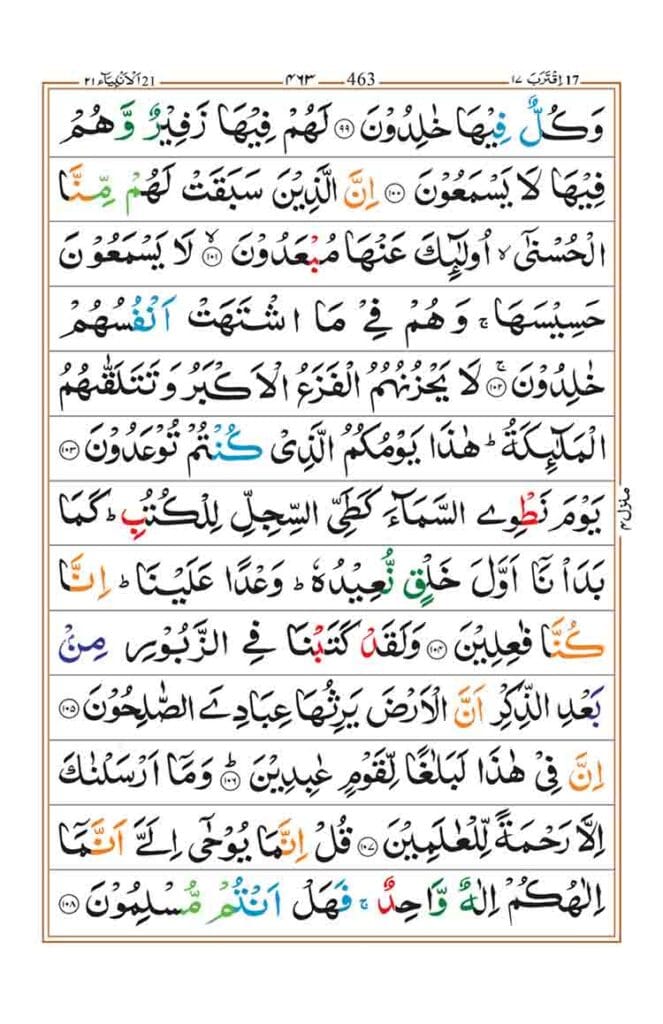 17 اِقْتَرَبَ ١٧ 463 ٤٦٣ 21 اَلْاَنْۢبِيَآء ٢١
وَكُلٌّ فِيْهَا خٰلِدُوْنَ ۝٩٩ لَهُمْ فِيْهَا زَفِيْرٌ وَّهُمْ
فِيْهَا لَا يَسْمَعُوْنَ ۝١٠٠ اِنَّ الَّذِيْنَ سَبَقَتْ لَهُمْ مِّنَّا
الْحُسْنٰٓى ۙ اُولٰٓئِكَ عَنْهَا مُبْعَدُوْنَ ۝١٠١ۙ لَا يَسْمَعُوْنَ
حَسِيْسَهَا ۚ وَهُمْ فِيْ مَا اشْتَهَتْ اَنْفُسُهُمْ
خٰلِدُوْنَ ۝١٠٢ۚ لَا يَحْزُنُهُمُ الْفَزَعُ الْاَكْبَرُ وَتَتَلَقّٰىهُمُ
الْمَلٰٓئِكَةُ ؕ هٰذَا يَوْمُكُمُ الَّذِيْ كُنْتُمْ تُوْعَدُوْنَ ۝١٠٣
يَوْمَ نَطْوِي السَّمَآءَ كَطَيِّ السِّجِلِّ لِلْكُتُبِ ؕ كَمَا
بَدَاْنَاۤ اَوَّلَ خَلْقٍ نُّعِيْدُهٗ ؕ وَعْدًا عَلَيْنَا ؕ اِنَّا
كُنَّا فٰعِلِيْنَ ۝١٠٤ وَلَقَدْ كَتَبْنَا فِي الزَّبُوْرِ مِنْۢ
بَعْدِ الذِّكْرِ اَنَّ الْاَرْضَ يَرِثُهَا عِبَادِيَ الصّٰلِحُوْنَ ۝١٠٥
اِنَّ فِيْ هٰذَا لَبَلٰغًا لِّقَوْمٍ عٰبِدِيْنَ ۝١٠٦ؕ وَمَاۤ اَرْسَلْنٰكَ
اِلَّا رَحْمَةً لِّلْعٰلَمِيْنَ ۝١٠٧ قُلْ اِنَّمَا يُوْحٰۤى اِلَيَّ اَنَّمَاۤ
اِلٰهُكُمْ اِلٰهٌ وَّاحِدٌ ۚ فَهَلْ اَنْتُمْ مُّسْلِمُوْنَ ۝١٠٨
منزل ٤